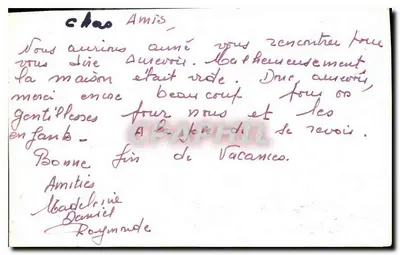 chers Amis,
Nous aurions aimé vous rencontrer pour
vous dire aurevoir. Malheureusement
la maison était vide. Donc aurevoir,
merci encore beaucoup pour vos
gentillesses pour nous et les
enfants. A la joie de se revoir.
Bonne fin de Vacances.
Amitiés
Madeleine
Daniel
Raymonde